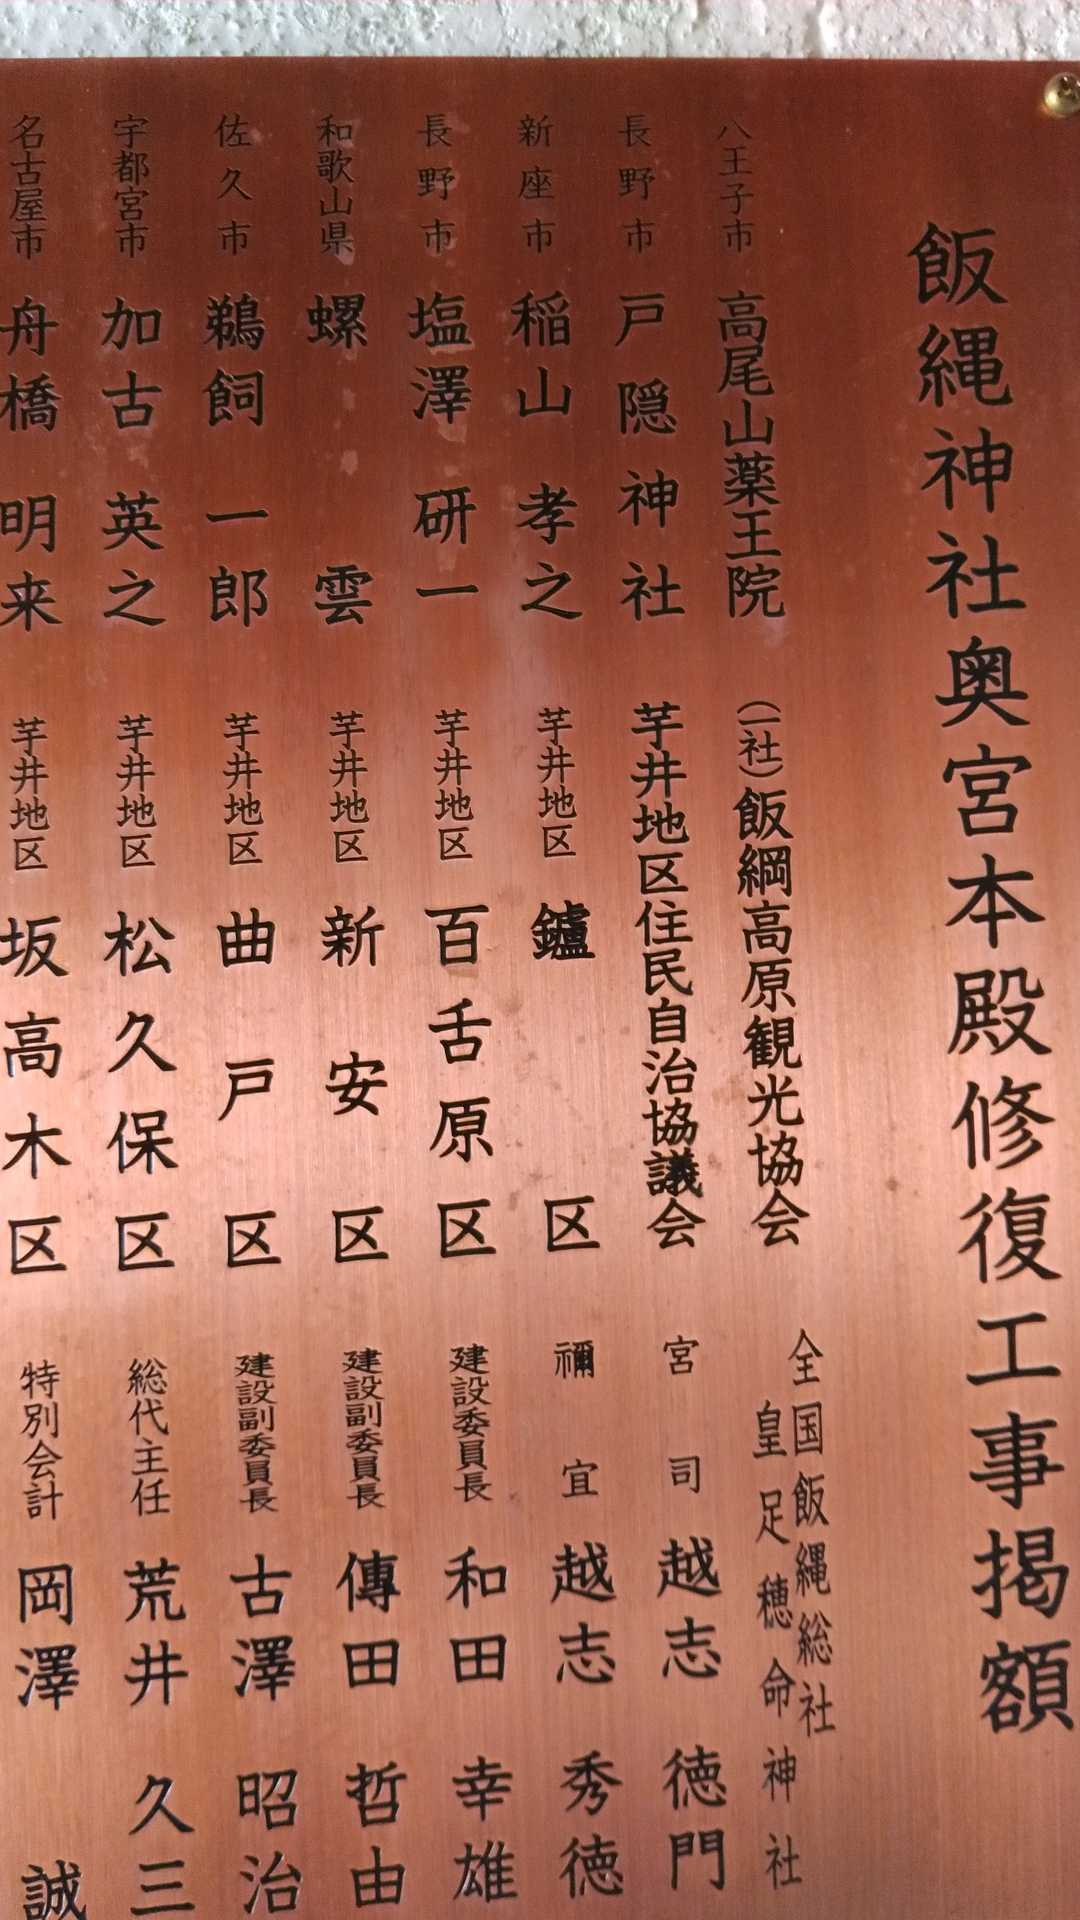 飯縄神社奥宮本殿修復工事掲額
八王子市 高尾山薬王院
長野市 戸隠神社
新座市 稲山孝之
長野市 塩澤研一
和歌山県 螺雲
佐久市 鵜飼一郎
宇都宮市 加古英之
名古屋市 舟橋明来
(一社)飯綱高原観光協会
芋井地区住民自治協議会
芋井地区 鑪区
芋井地区 百舌原区
芋井地区 新安区
芋井地区 曲戸区
芋井地区 松久保区
芋井地区 坂高木区
全国飯縄総社
皇足穂命神社
宮司 越志徳門
禰宜 越志秀徳
建設委員長 和田幸雄
建設副委員長 傳田哲由
建設副委員長 古澤昭治
総代主任 荒井久三
特別会計 岡澤誠